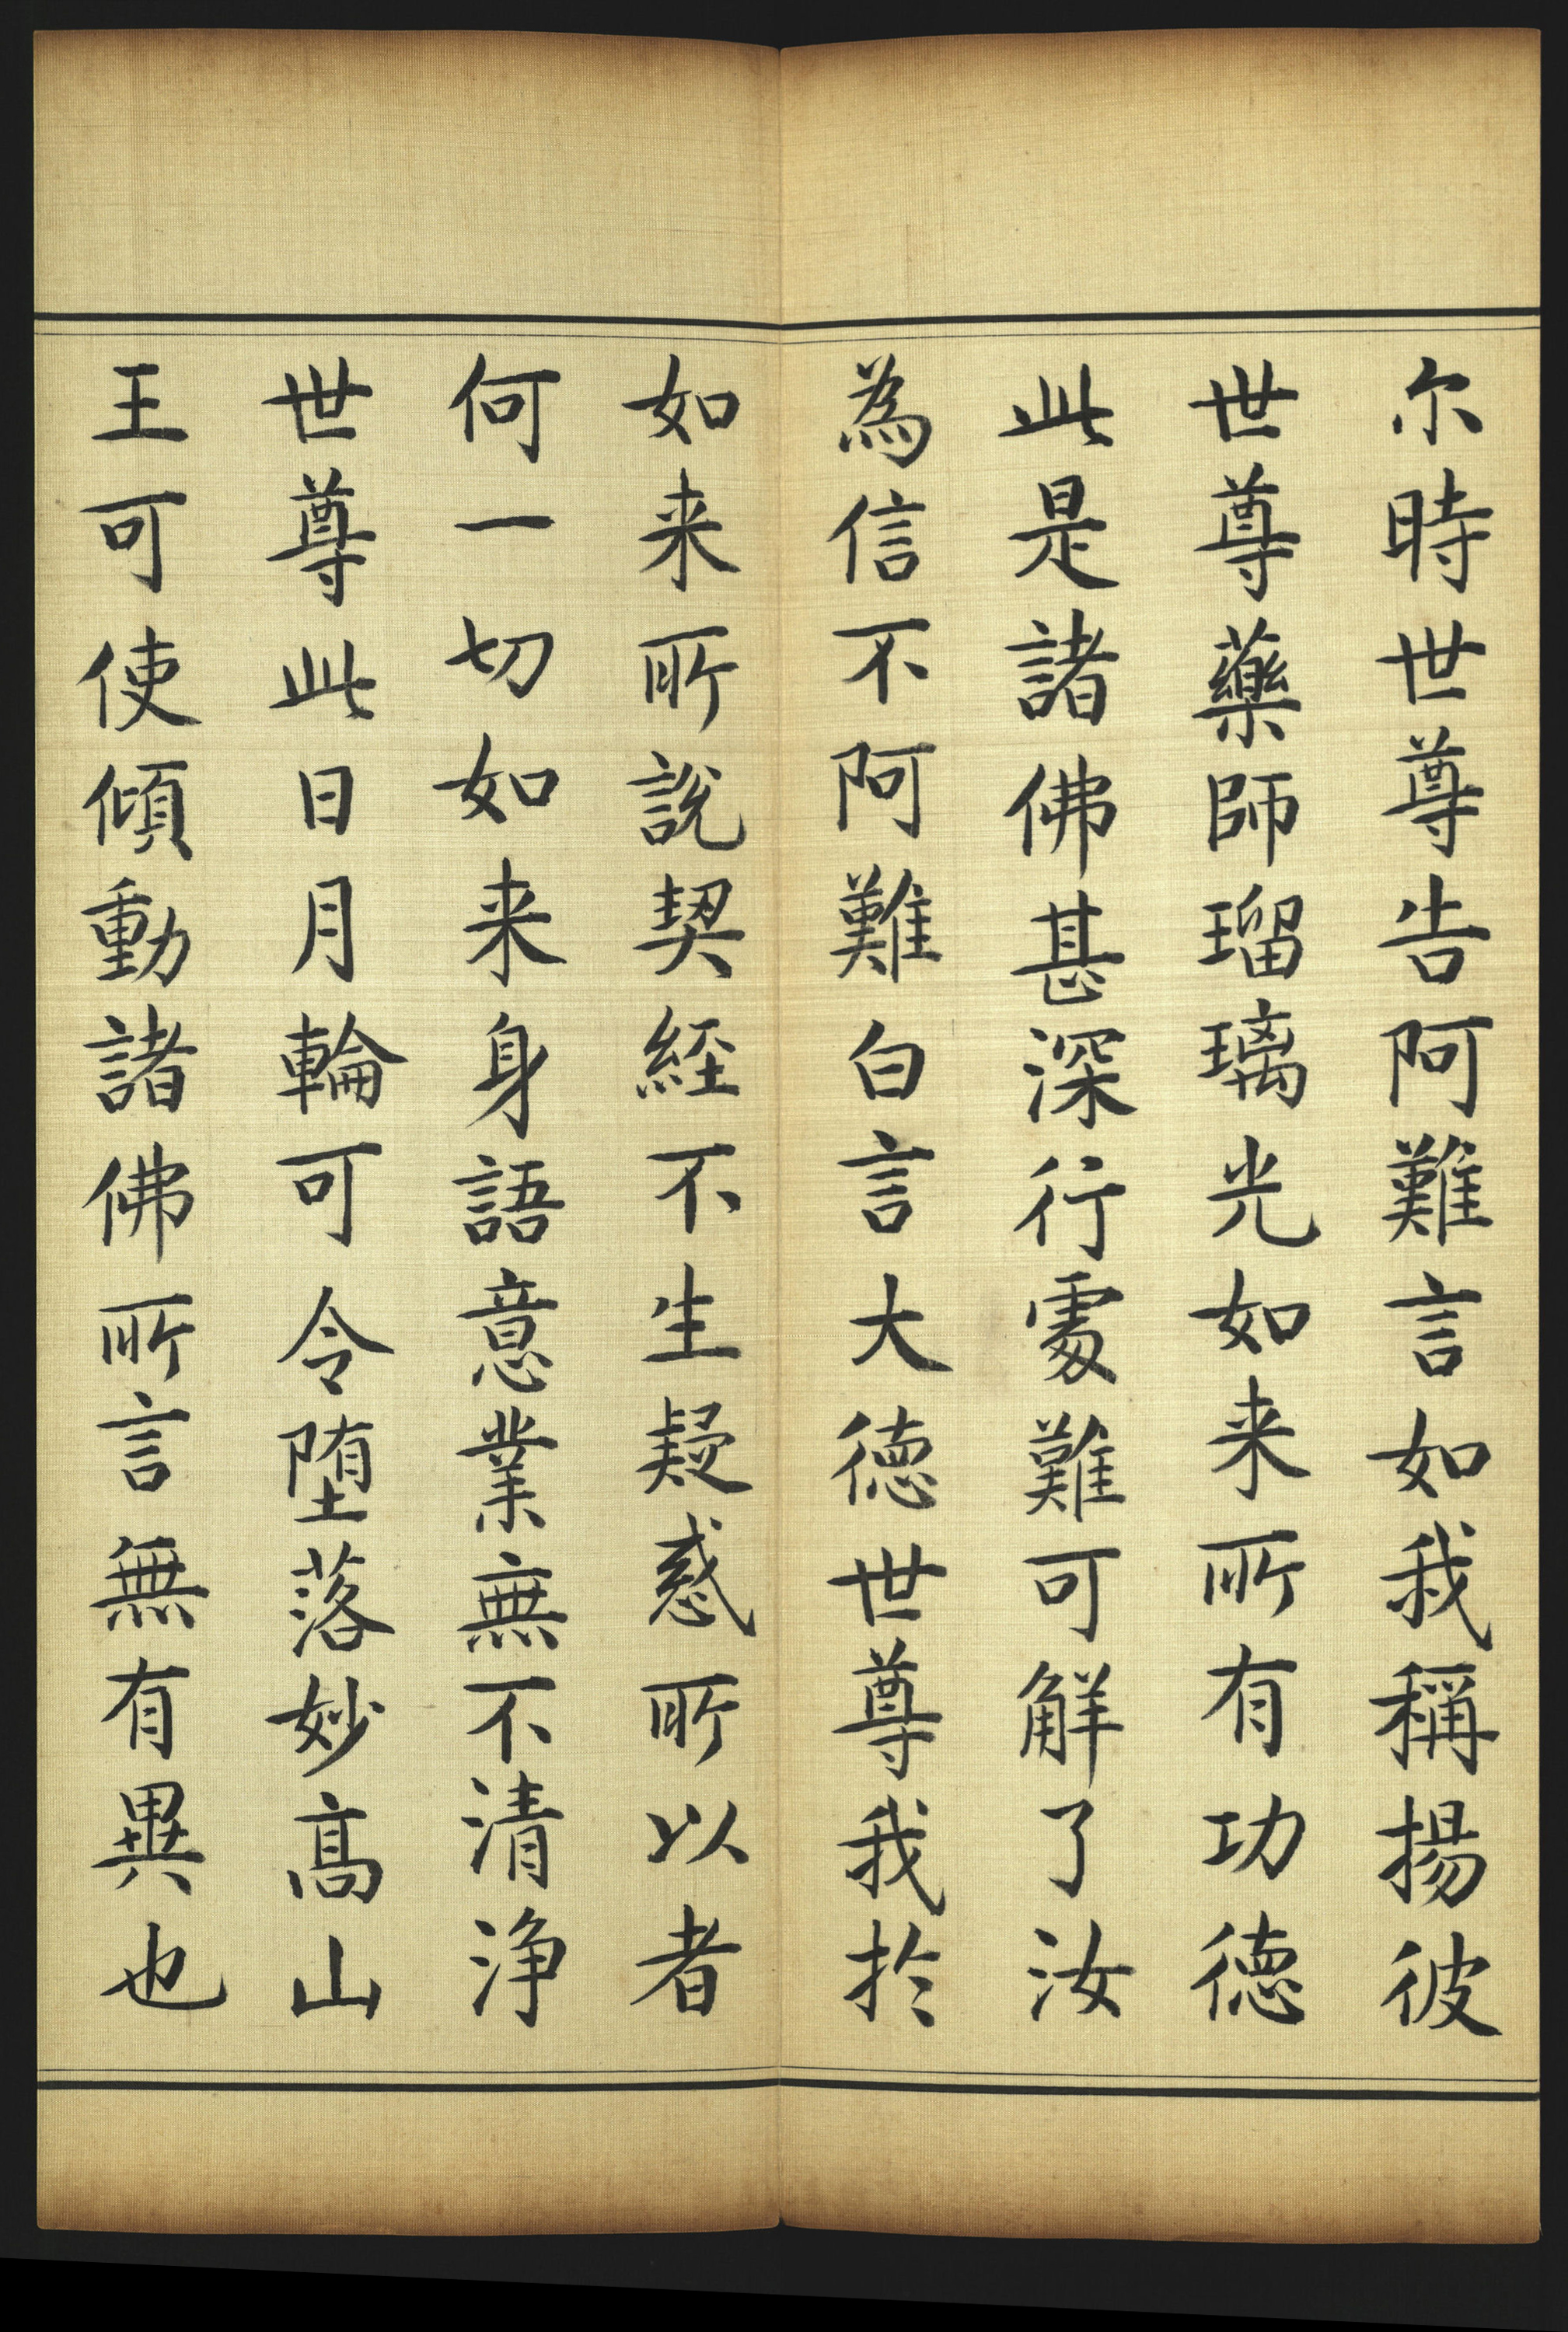 尔時世尊告阿難言如我稱揚彼
世尊藥師瑠璃光如来所有功德
此是諸佛甚深行處難可解了汝
為信不阿難白言大德世尊我於
如来所說契經不生疑惑所以者
何一切如来身語意業無不清淨
世尊此日月輪可令堕落妙高山
王可使傾動諸佛所言無有異也